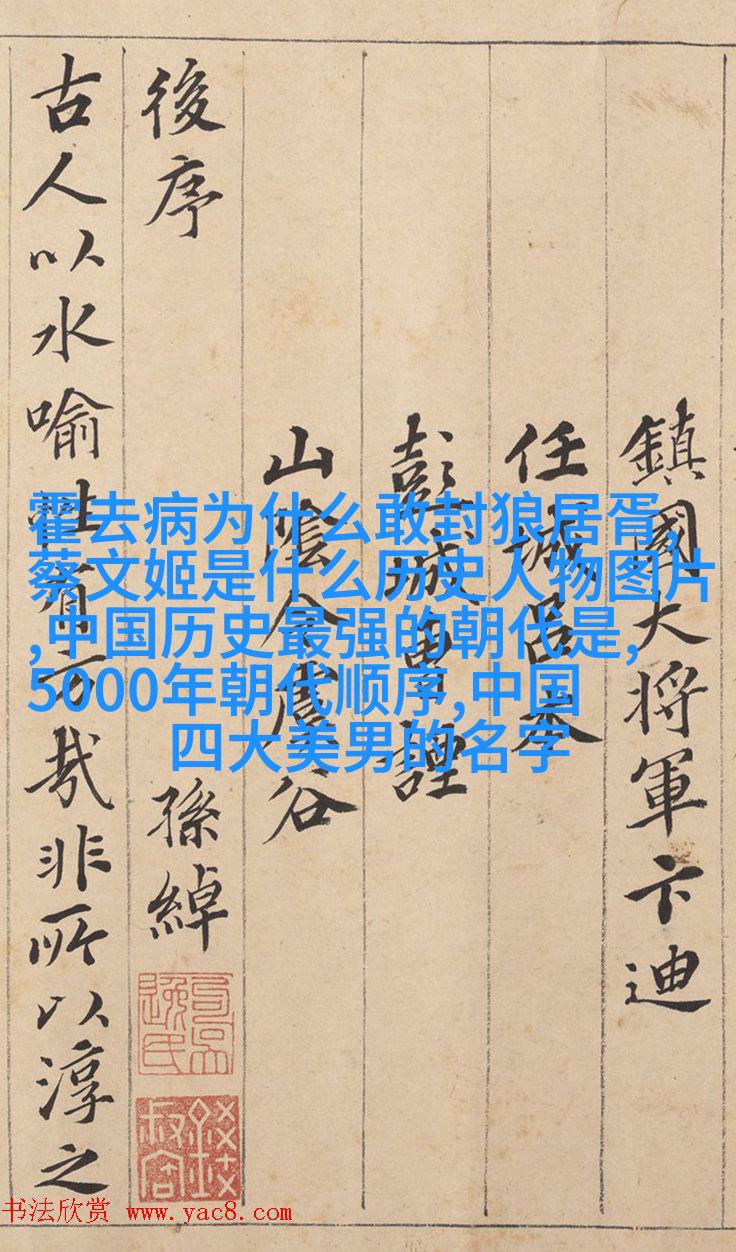 鎮國大将軍卞迪
任城呂夲
彭城曹諲
山陰令虞谷
後序 孫綽
古人以水喻性有旨哉非所以淳之
霍去病为什么敢封狼居胥,
蔡文姬是什么历史人物图片
,中国历史最强的朝代是,
5000年朝代顺序,中国
四大美男的名字
书法欣赏 www.yac8.com